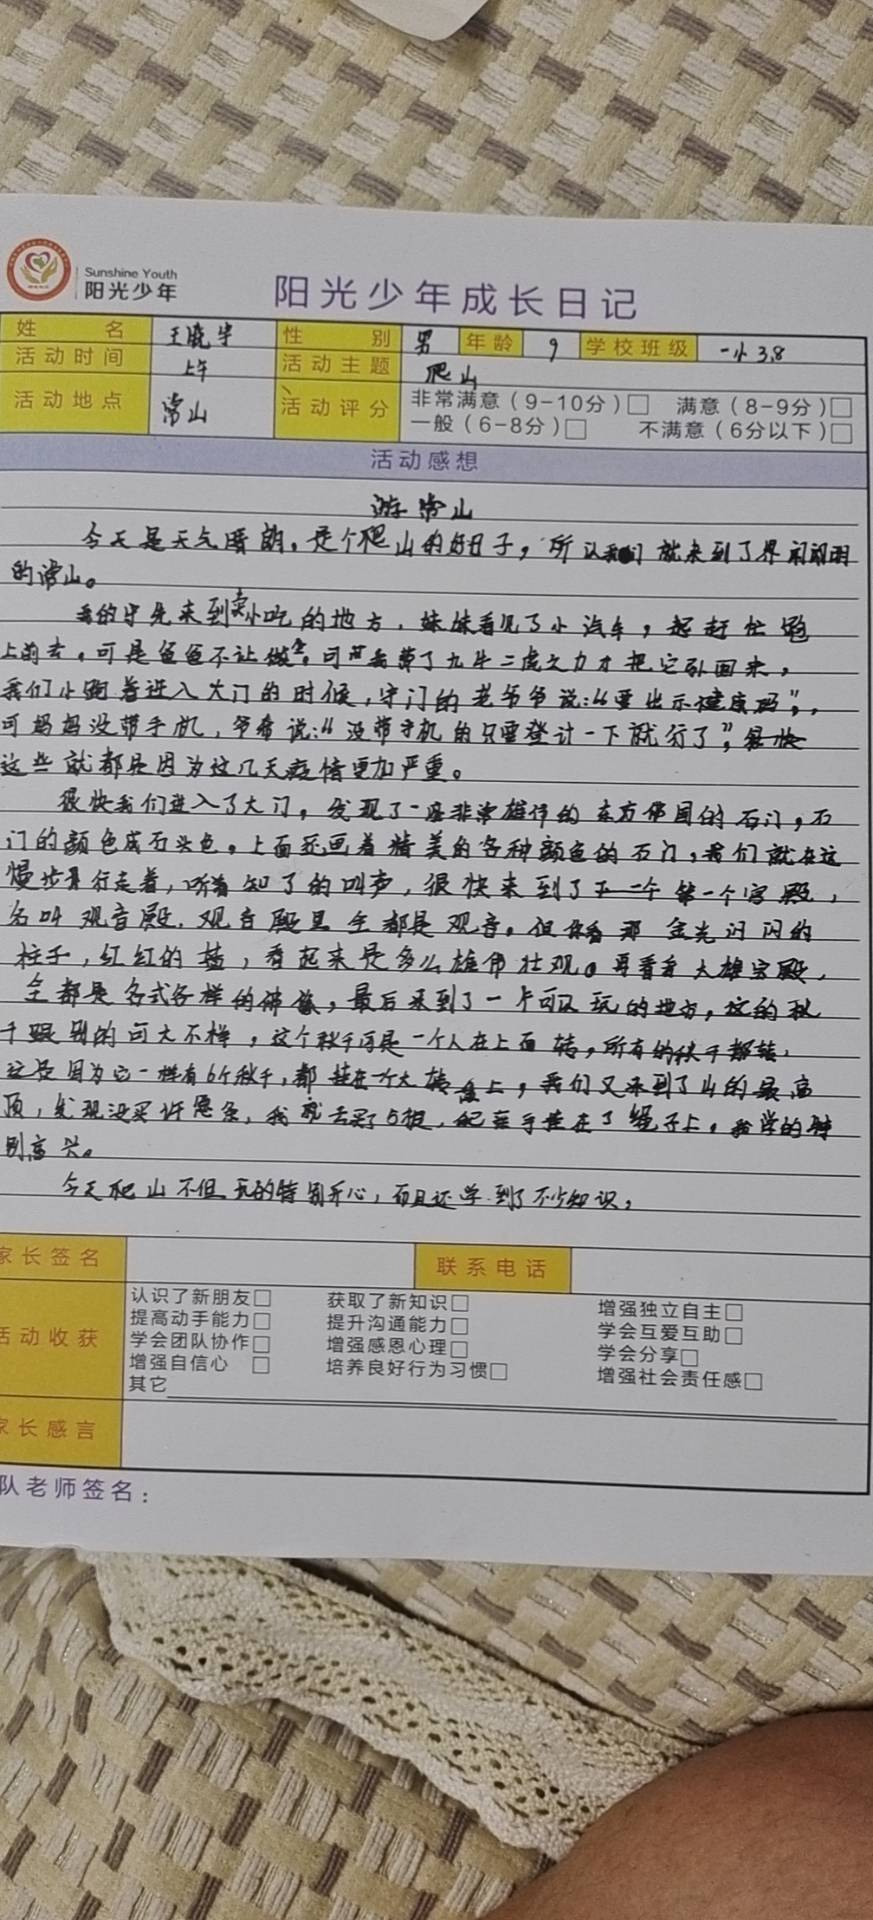 Sunshine Youth
阳光少年
阳光少年成长日记
姓名 王晓宇 性别 男 年龄 9 学校班级 一小 3.8
活动时间 上午 活动主题 爬山
活动地点 常山 活动评分 非常满意（9-10分）□ 满意（8-9分）□
一般（6-8分）□ 不满意（6分以下）□
活动感想
游常山
今天是天气晴朗，是个爬山的好日子，所以我们就来到了界闻闻明
的常山。
我们先来到卖小吃的地方，妹妹看见了小汽车，起赶忙跑
上前去，可是爸爸不让做，可 我费了九牛二虎之力才把它引回来，
我们小跑着进入大门的时候，守门的老爷爷说:“要出示健康码”，
可妈妈没带手机，爷爷说:“没带手机的只要登计一下就行了”，很快
这些就都是因为这几天疫情更加严重。
很快我们进入了大门，发现了一座非常雄伟的东方佛国的石门，石
门的颜色成石头色，上面还画着精美的各种颜色的石门，我们就在这
慢步行走着，听着知了的叫声，很快来到了 第一个宫殿，
名叫观音殿，观音殿里全都是观音。但 看那金光闪闪的
柱子，红红的墙，看起来是多么雄伟壮观。再看看大雄宝殿，
全都是各式各样的佛像，最后来到了一片可以玩的地方，这的秋
千跟别的可大不样，这个秋千可是一个人在上面转，所有的秋千都转，
这是因为它一样有6个秋千，都挂在一个大转盘上，我们又来到了山的最高
顶，发现没买许愿条，我就去买了5根，把 挂在了绳子上。我 的特
别高兴。
今天爬山不但玩的特别开心，而且还学到了不少知识，
家长签名 联系电话
活动收获
认识了新朋友□ 获取了新知识□ 增强独立自主□
提高动手能力□ 提升沟通能力□ 学会互爱互助□
学会团队协作□ 增强感恩心理□ 学会分享□
增强自信心 □ 培养良好行为习惯□ 增强社会责任感□
其它
家长感言
队老师签名：